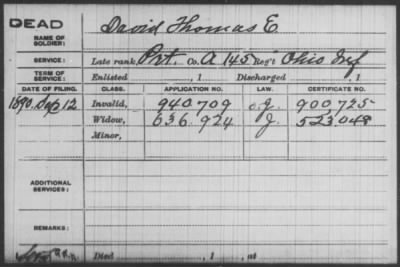 DEAD
NAME OF SOLDIER: David Thomas E.
SERVICE: Late rank, Pvt. Co. A 145 Reg't Ohio Inf
TERM OF SERVICE: Enlisted , 1 Discharged , 1
DATE OF FILING. CLASS. APPLICATION NO. LAW. CERTIFICATE NO.
1890. Sep 12 Invalid, 940.709 900.725
Widow, 636.924 J. 523.048
Minor,
ADDITIONAL SERVICES:
REMARKS:
Died , 1 , at